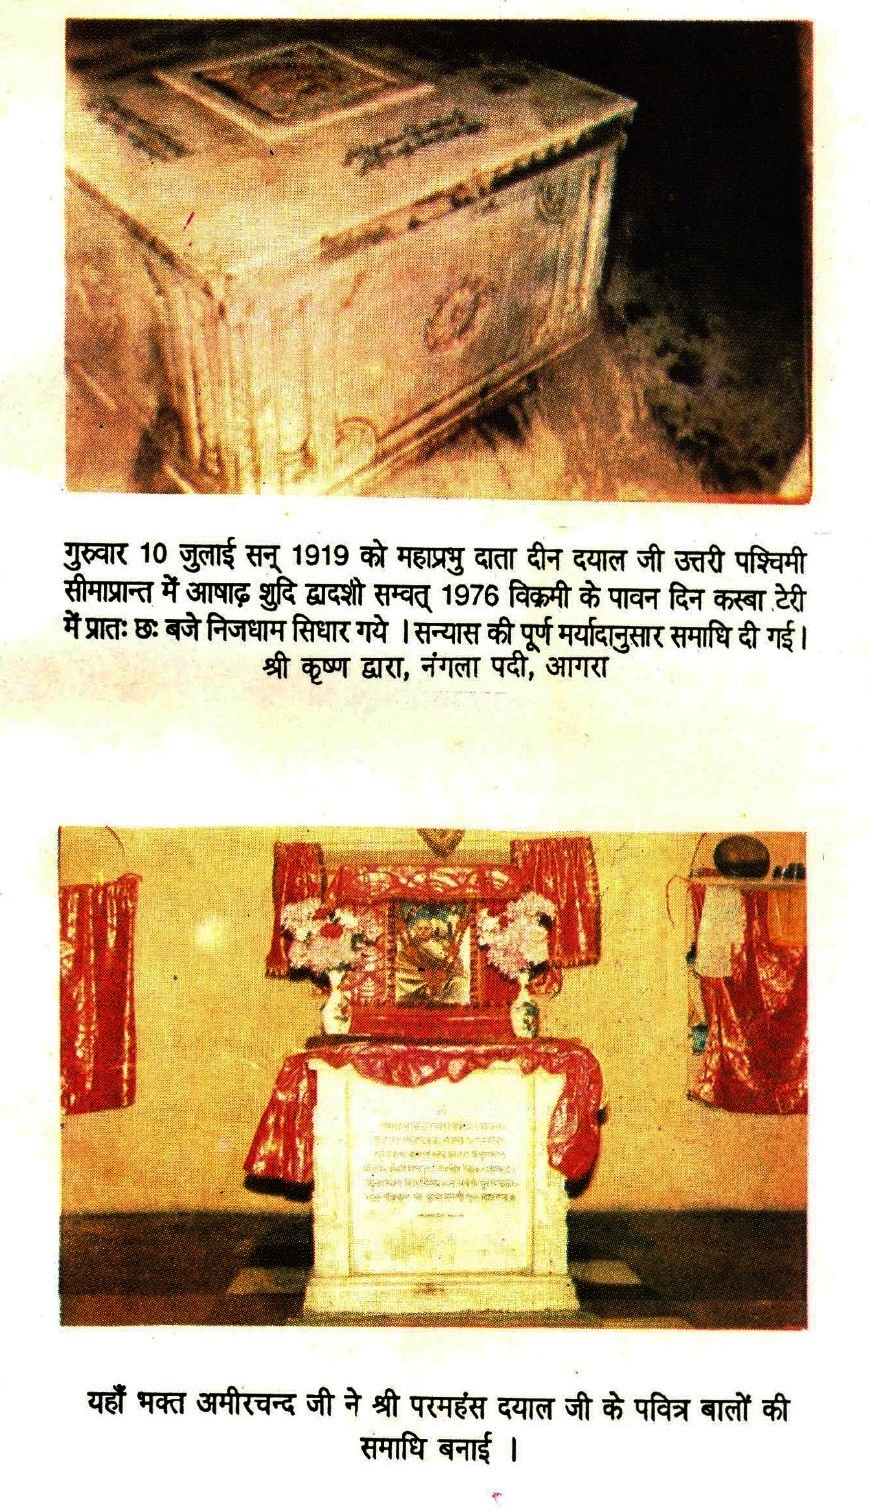 गुरुवार 10 जुलाई सन् 1919 को महाप्रभु दाता दीन दयाल जी उत्तरी पश्चिमी
सीमाप्रान्त में आषाढ़ शुदि द्वादशी सम्वत् 1976 विक्रमी के पावन दिन कस्बा टेरी
में प्रातः छः बजे निजधाम सिधार गये । सन्यास की पूर्ण मर्यादानुसार समाधि दी गई।
श्री कृष्ण द्वारा, नंगला पदी, आगरा
यहाँ भक्त अमीरचन्द जी ने श्री परमहंस दयाल जी के पवित्र बालों की
समाधि बनाई ।